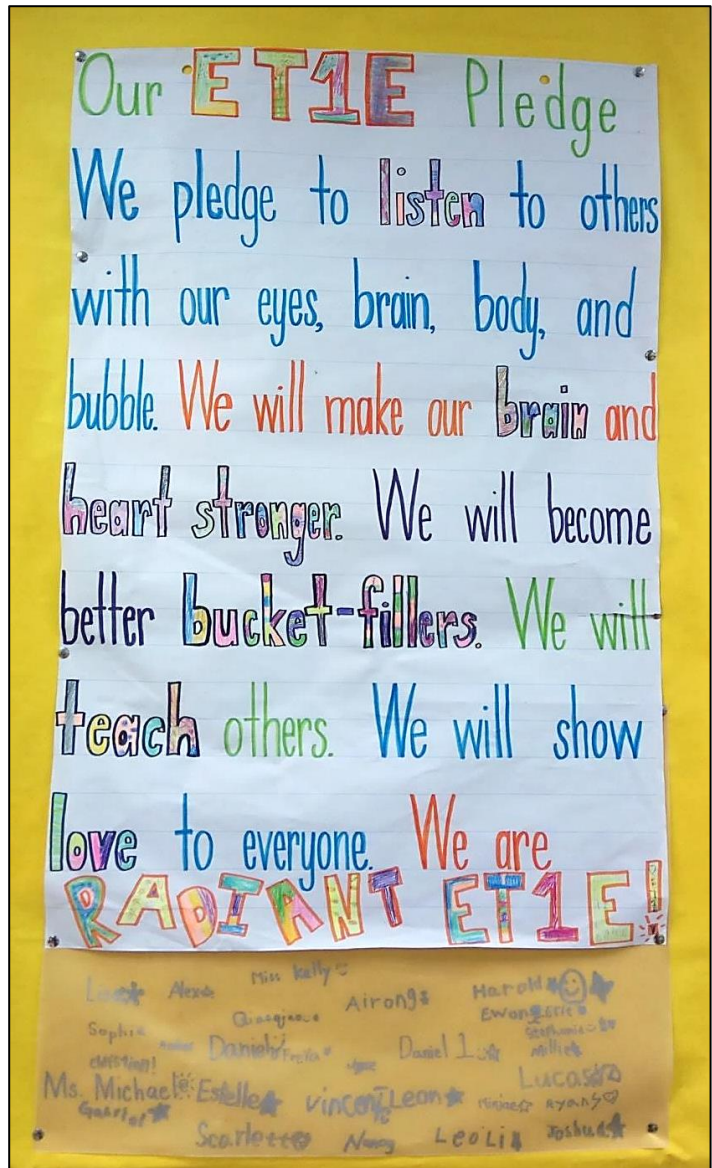 Our ET1E Pledge
We pledge to listen to others
with our eyes, brain, body, and
bubble. We will make our brain and
heart stronger. We will become
better bucket-fillers. We will
teach others. We will show
love to everyone. We are
RADIANT ET1E!
Miss Kelly
Alex Airong Harold
Sophia Daniel Daniel 1 Millie
Ms. Michael Estelle Vincent Leon Lucas
Gabriel Ayan
Scarlett Nancy Leo Li Joshua